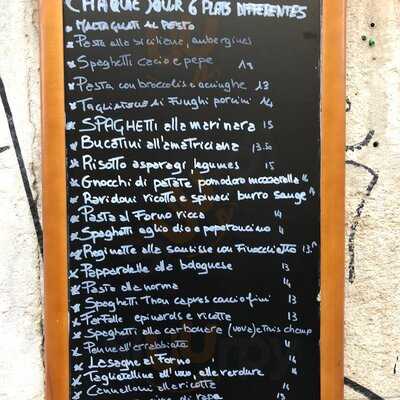 CHAQUE JOUR 6 PLATS DIFFERENTES
MALTAGLIATI AL PESTO
Pasta alla siciliana, aubergines
Spaghetti cacio e pepe 13
Pasta con broccolis e acciughe 13
Tagliatelle ai Funghi porcini 14
SPAGHETTI alla marinara 15
Bucatini all'amatriciana 13.50
Risotto asparagi legumes 15
Gnocchi di patate pomodoro mozzarella
Ravioloni ricotta e spinaci burro sauge
Pasta al Forno ricca 14
Spaghetti aglio olio e peperoncino 11
Reginette alla saucisse con Finocchietto 13.
Pappardelle alla bolognese 13
Pasta alla norma 14
Spaghetti Thon capres carciofini 13
Farfalle epinards e ricotta 13
Spaghetti alla carbonara (uova) 
Penne all'arrabbiata 11
Lasagne al Forno 14
Tagliatelline all'uovo, alle verdure
Cannelloni alla ricotta
di rapa